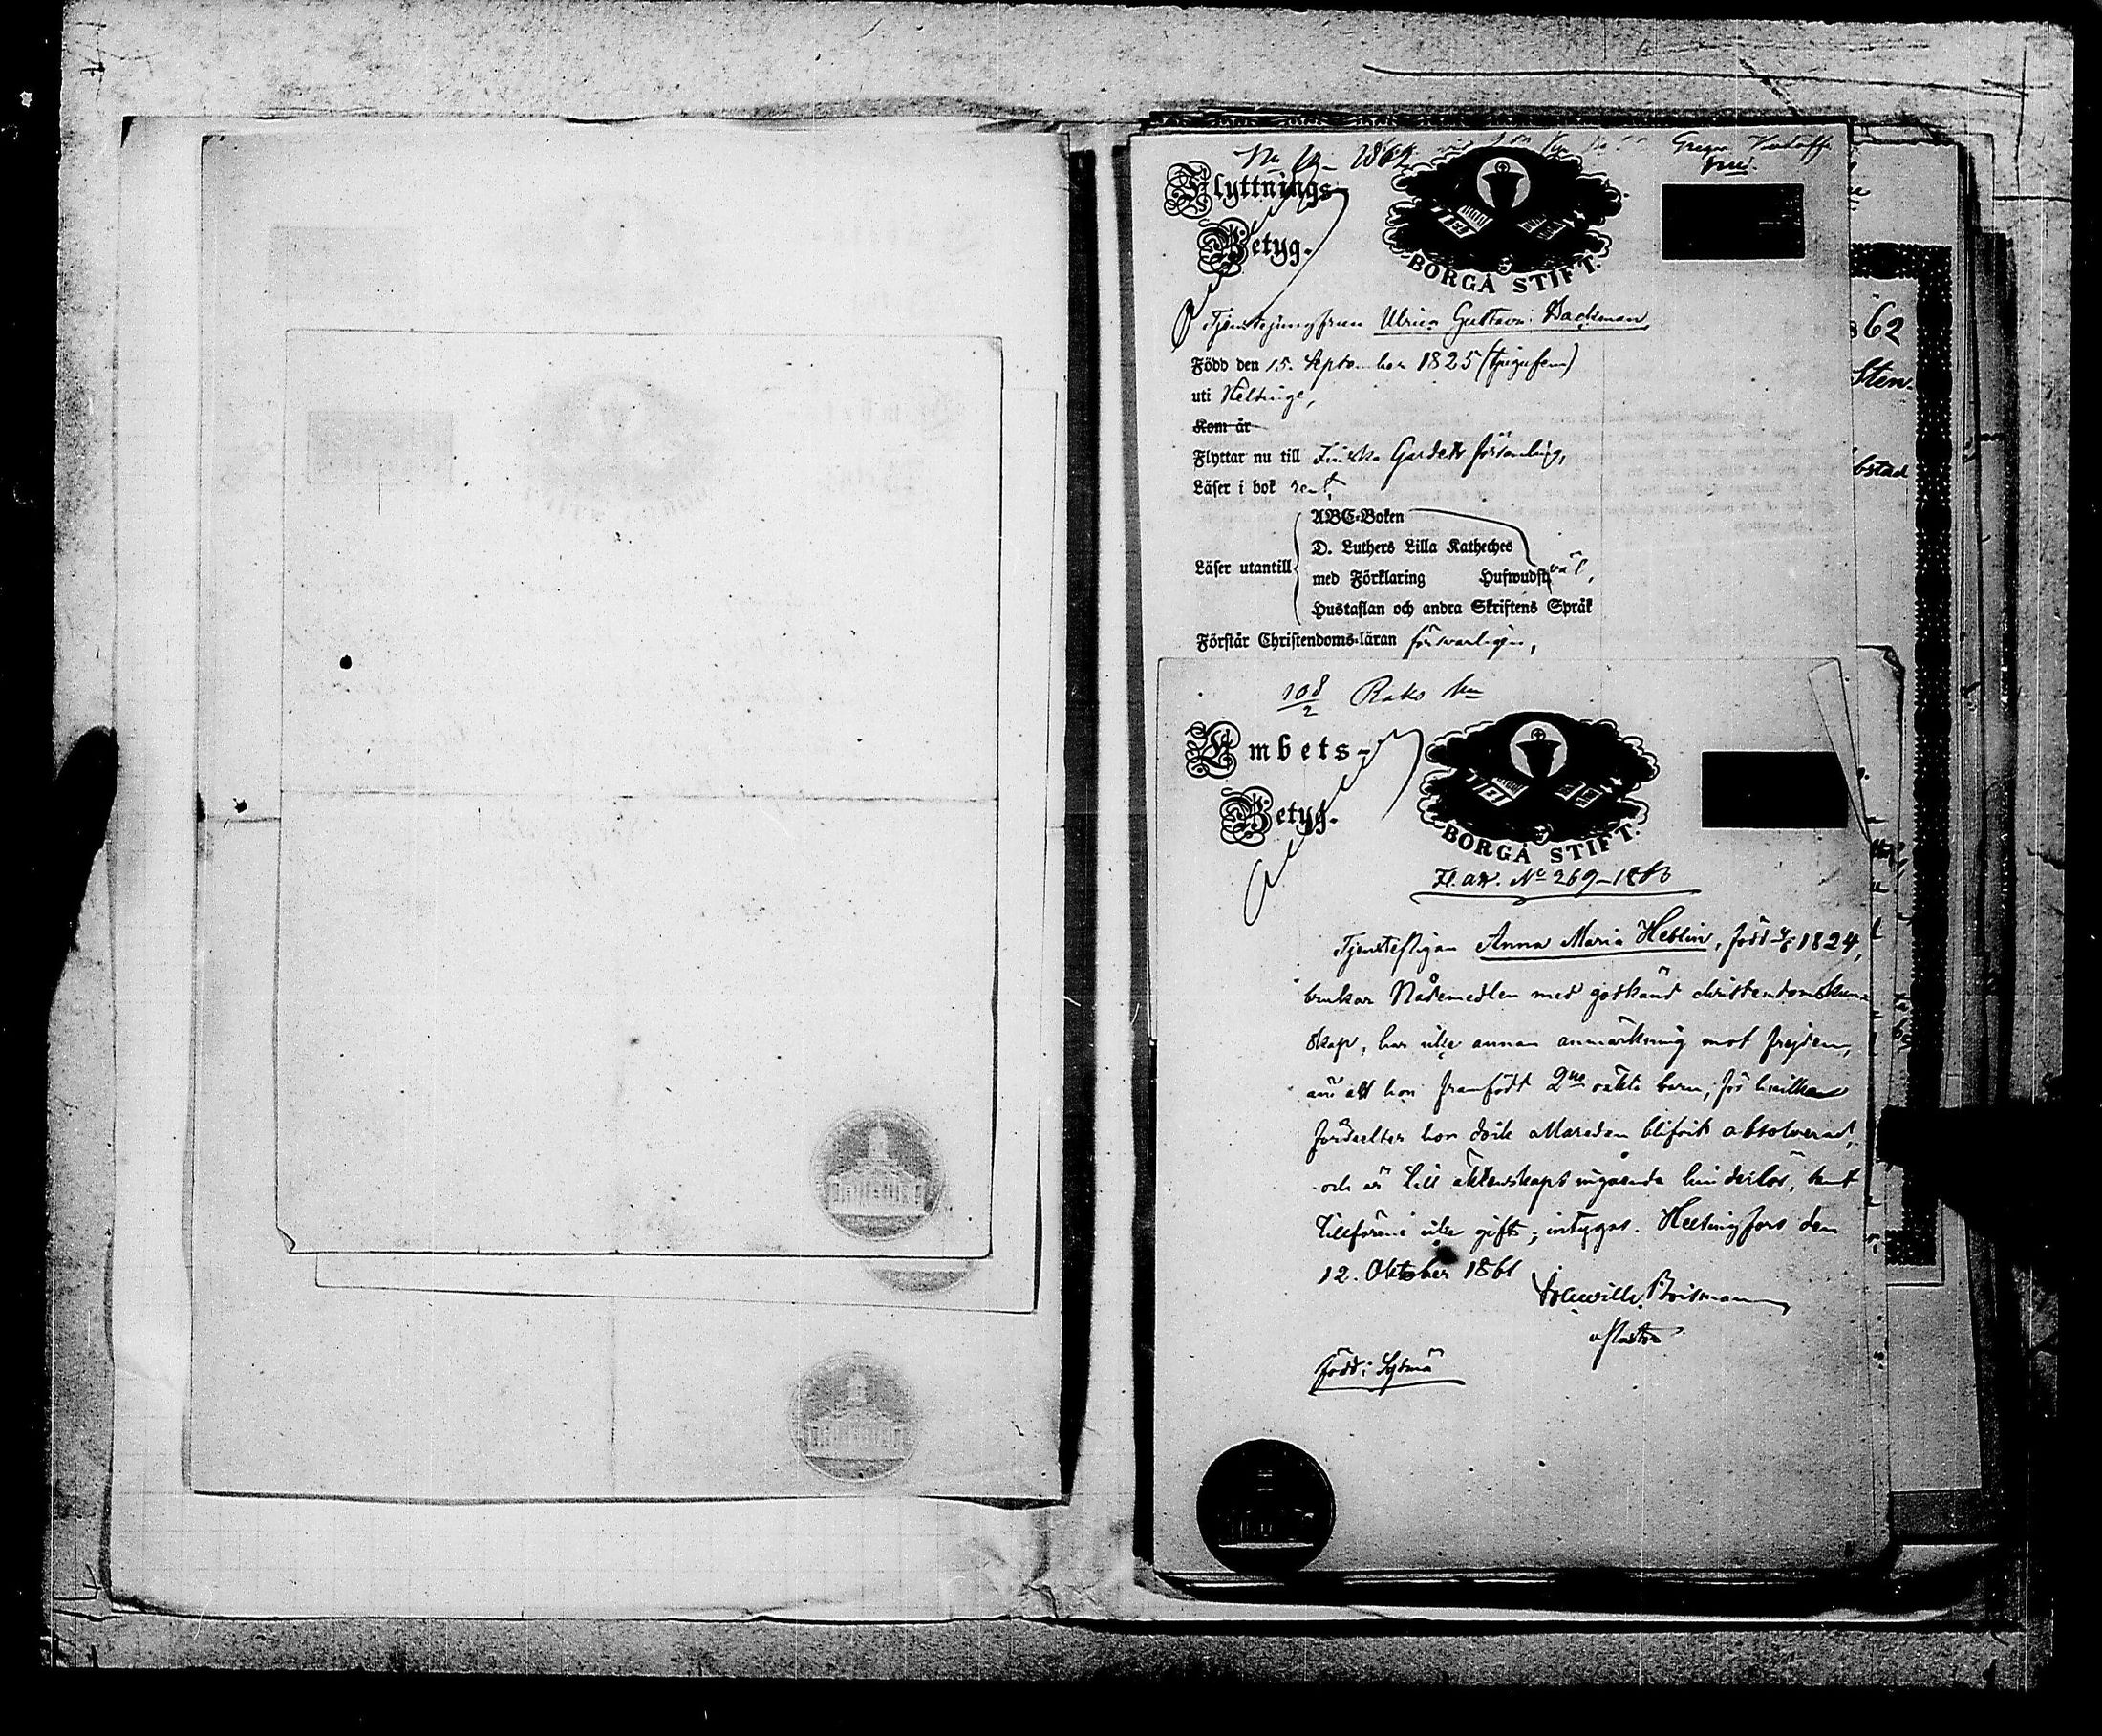 No 19 1862
Flyttnings-
Betyg.
BORGÅ STIFT.
Tjenstejungfrun Ulrica Gustava Backman
Född den 15. September 1825 (tjugufem)
uti Helsinge,
Kom år
Flyttar nu till Finska Gardets församling,
Läser i bok rent,
Läser utantill
ABC-Boken
D. Luthers Lilla Katheches
med Förklaring Hufwudst. väl,
Hustaflan och andra Skriftens Språk
Förstår Christendoms-läran försvarligen,
108/2
Embets-
Betyg.
BORGÅ STIFT.
No 269
Tjensteflickan Anna Maria Heblin, född 1824,
brukar Nådemedlen med godkänd christendomskun-
skap, har icke annan anmärkning mot frejden,
än att hon framfödt 2ne oäkta barn, för hvilka
hon absolverad,
och är till äktenskaps ingående hinderlös, samt
tillförene icke gift; intygas. Helsingfors den
12. Oktober 1861
född i Sysmä
62
Sten-
bstad